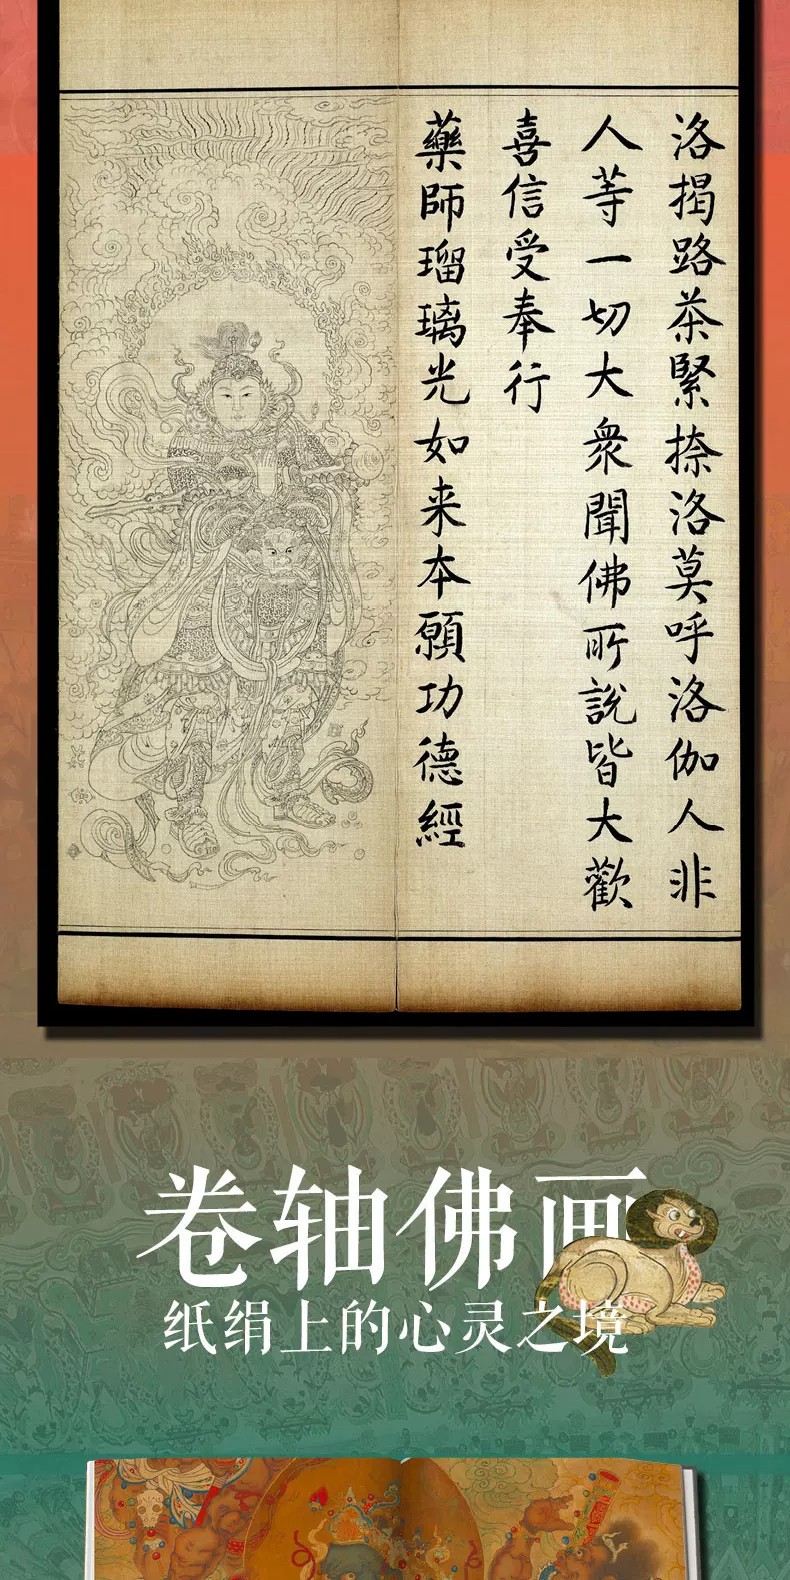 洛揭路茶緊捺洛莫呼洛伽人非
人等一切大衆聞佛所說皆大歡
喜信受奉行
藥師瑠璃光如来本願功德經
卷轴佛画
纸绢上的心灵之境